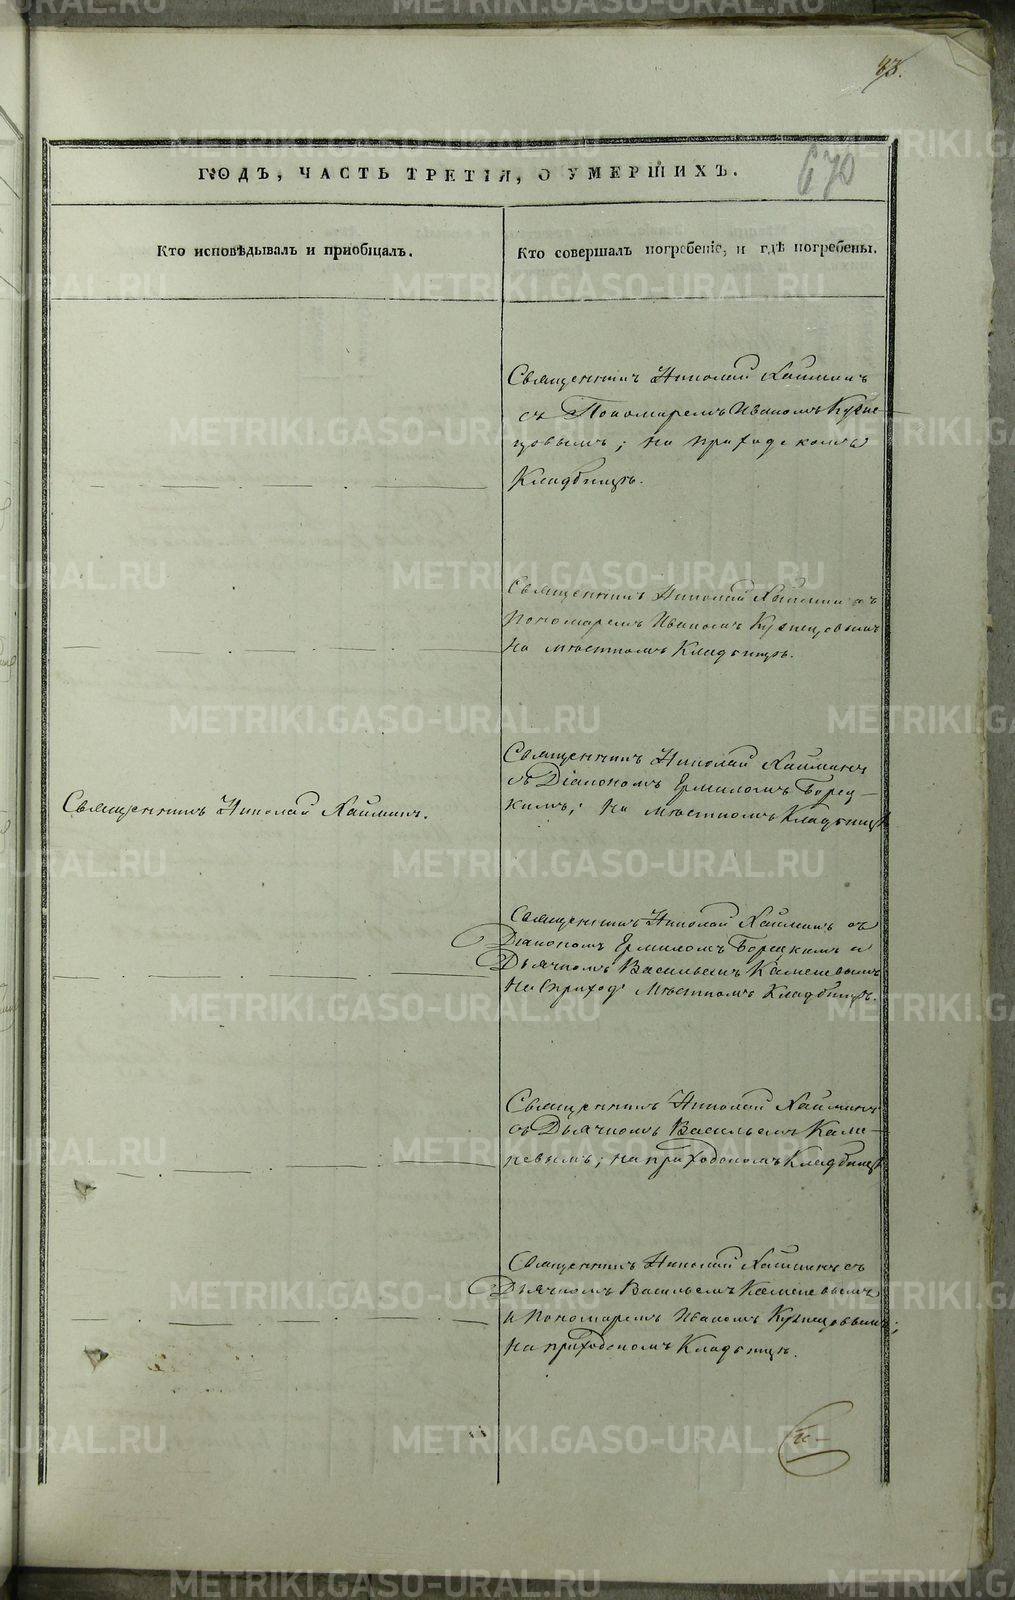 83.
670
ГОДЪ, ЧАСТЬ ТРЕТІЯ, О УМЕРШИХЪ.
Кто исповѣдывалъ и пріобщалъ.
Кто совершалъ погребеніе, и гдѣ погребены.
Священникъ Николай Хайминъ
съ Пономаремъ Иваномъ Кузне-
цовымъ; на приходскомъ
Кладбищѣ.
Священникъ Николай Хайминъ съ
Пономаремъ Иваномъ Кузнецовымъ
на мѣстномъ Кладбищѣ.
Священникъ Николай Хайминъ.
Священникъ Николай Хайминъ
съ Діакономъ Ермиломъ Борец-
кимъ; на мѣстномъ Кладбищѣ
Священникъ Николай Хайминъ съ
Діакономъ Ермиломъ Борецкимъ и
Дьячкомъ Васильемъ Каменевымъ
на приход мѣстномъ Кладбищѣ.
Священникъ Николай Хайминъ
съ Дьячкомъ Васильемъ Каме-
невымъ; на приходскомъ Кладбищѣ
Священникъ Николай Хайминъ съ
Дьячкомъ Васильемъ Каменевымъ
и Пономаремъ Иваномъ Кузнецовымъ;
на приходскомъ Кладбищѣ.
METRIKI.GASO-URAL.RU